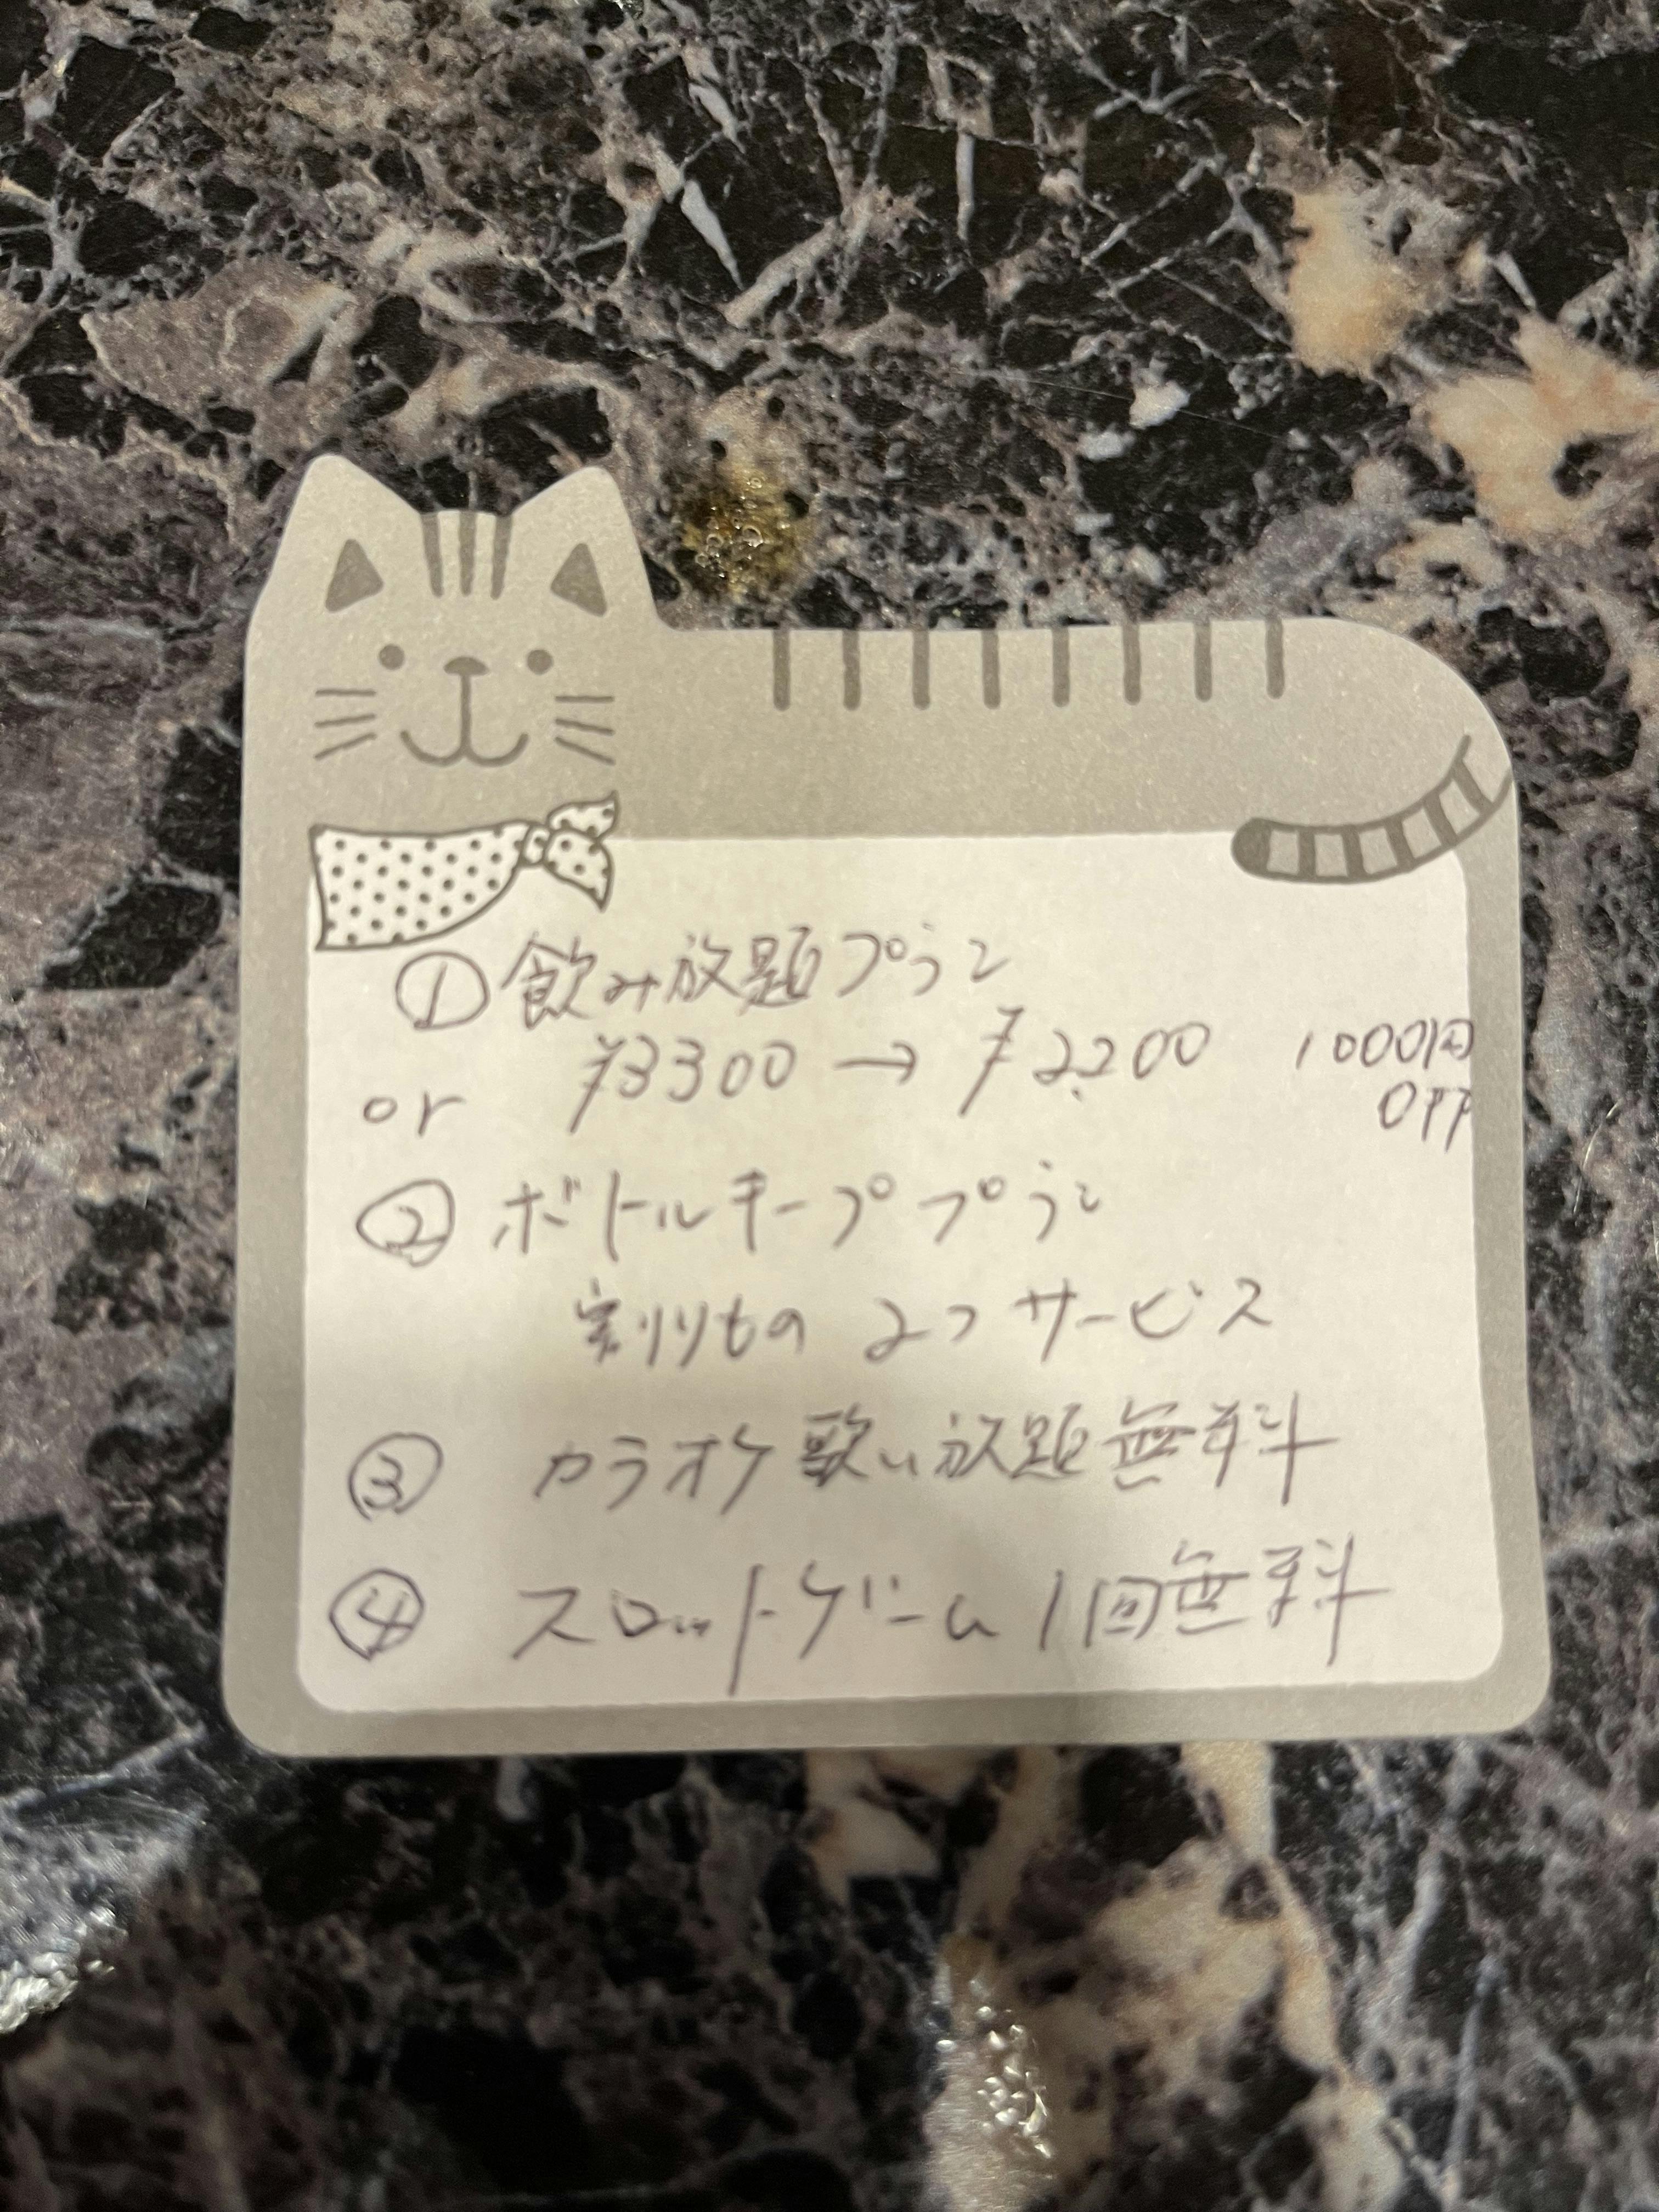 ①飲み放題プラン
¥3300 → ¥2200 1000円OFF
or
②ボトルキーププラン
割りもの 2つサービス
③ カラオケ歌い放題無料
④ スロットゲーム1回無料